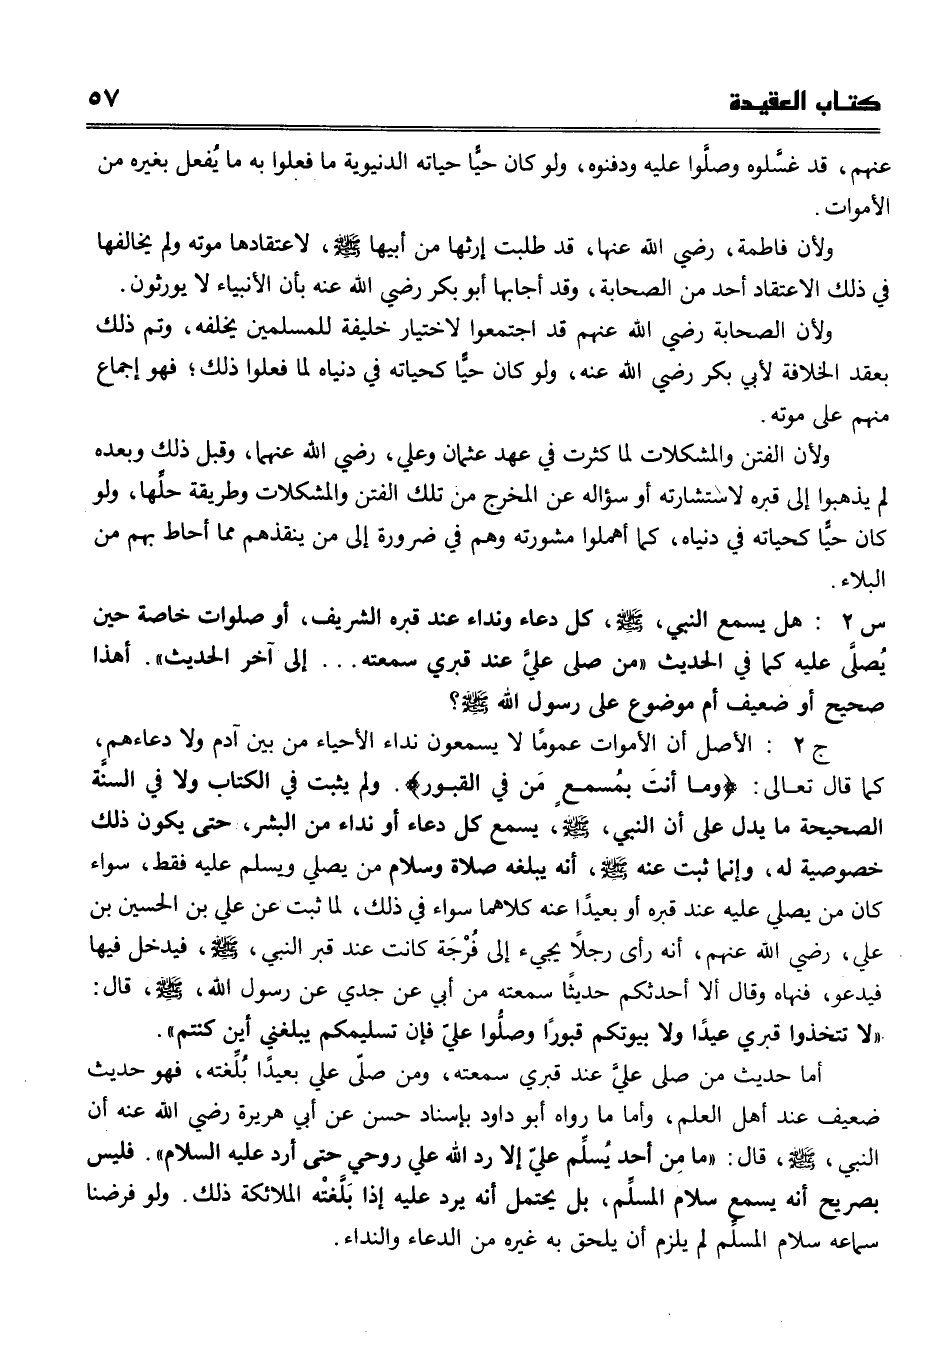 كتاب العقيدة ٥٧
عنهم، قد غسَّلوه وصلَّوا عليه ودفنوه، ولو كان حيًّا حياته الدنيوية ما فعلوا به ما يُفعل بغيره من
الأموات.
ولأن فاطمة، رضي الله عنها، قد طلبت إرثها من أبيها ﷺ، لاعتقادها موته ولم يخالفها
في ذلك الاعتقاد أحد من الصحابة، وقد أجابها أبو بكر رضي الله عنه بأن الأنبياء لا يورثون.
ولأن الصحابة رضي الله عنهم قد اجتمعوا لاختيار خليفة للمسلمين يخلفه، وتم ذلك
بعقد الخلافة لأبي بكر رضي الله عنه، ولو كان حيًّا كحياته في دنياه لما فعلوا ذلك؛ فهو إجماع
منهم على موته.
ولأن الفتن والمشكلات لما كثرت في عهد عثمان وعلي، رضي الله عنهما، وقبل ذلك وبعده
لم يذهبوا إلى قبره لاستشارته أو سؤاله عن المخرج من تلك الفتن والمشكلات وطريقة حلِّها، ولو
كان حيًّا كحياته في دنياه، كما أهملوا مشورته وهم في ضرورة إلى من ينقذهم مما أحاط بهم من
البلاء.
س ٢ : هل يسمع النبي، ﷺ، كل دعاء ونداء عند قبره الشريف، أو صلوات خاصة حين
يُصلَّى عليه كما في الحديث «من صلى عليَّ عند قبري سمعته... إلى آخر الحديث». أهذا
صحيح أو ضعيف أم موضوع على رسول الله ﷺ؟
ج ٢ : الأصل أن الأموات عمومًا لا يسمعون نداء الأحياء من بين آدم ولا دعاءهم،
كما قال تعالى: ﴿وما أنتَ بمُسمعٍ مَن في القبور﴾. ولم يثبت في الكتاب ولا في السنَّة
الصحيحة ما يدل على أن النبي، ﷺ، يسمع كل دعاء أو نداء من البشر، حتى يكون ذلك
خصوصية له، وإنما ثبت عنه ﷺ، أنه يبلغه صلاة وسلام من يصلي ويسلم عليه فقط، سواء
كان من يصلي عليه عند قبره أو بعيدًا عنه كلاهما سواء في ذلك، لما ثبت عن علي بن الحسين بن
علي، رضي الله عنهم، أنه رأى رجلاً يجيء إلى فُرْجَة كانت عند قبر النبي، ﷺ، فيدخل فيها
فيدعو، فنهاه وقال ألا أحدثكم حديثًا سمعته من أبي عن جدي عن رسول الله، ﷺ، قال:
«لا تتخذوا قبري عيدًا ولا بيوتكم قبورًا وصلُّوا عليّ فإن تسليمكم يبلغني أين كنتم».
أما حديث من صلى عليَّ عند قبري سمعته، ومن صلّى علي بعيدًا بُلِّغته، فهو حديث
ضعيف عند أهل العلم، وأما ما رواه أبو داود بإسناد حسن عن أبي هريرة رضي الله عنه أن
النبي، ﷺ، قال: «ما مِن أحد يُسلِّم عليّ إلا رد الله علي روحي حتى أرد عليه السلام». فليس
بصريح أنه يسمع سلام المسلِّم، بل يحتمل أنه يرد عليه إذا بَلَّغتْه الملائكة ذلك. ولو فرضنا
سماعه سلام المسلِّم لم يلزم أن يلحق به غيره من الدعاء والنداء.